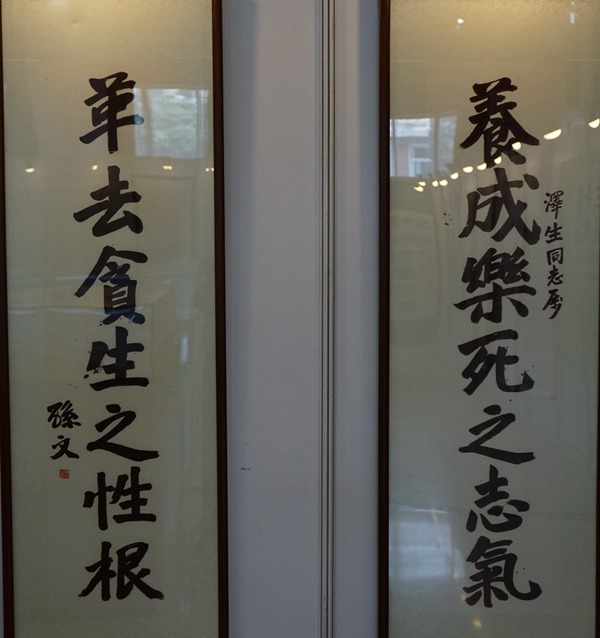 養成樂死之志氣
澤生同志屬
革去貪生之性根
孫文